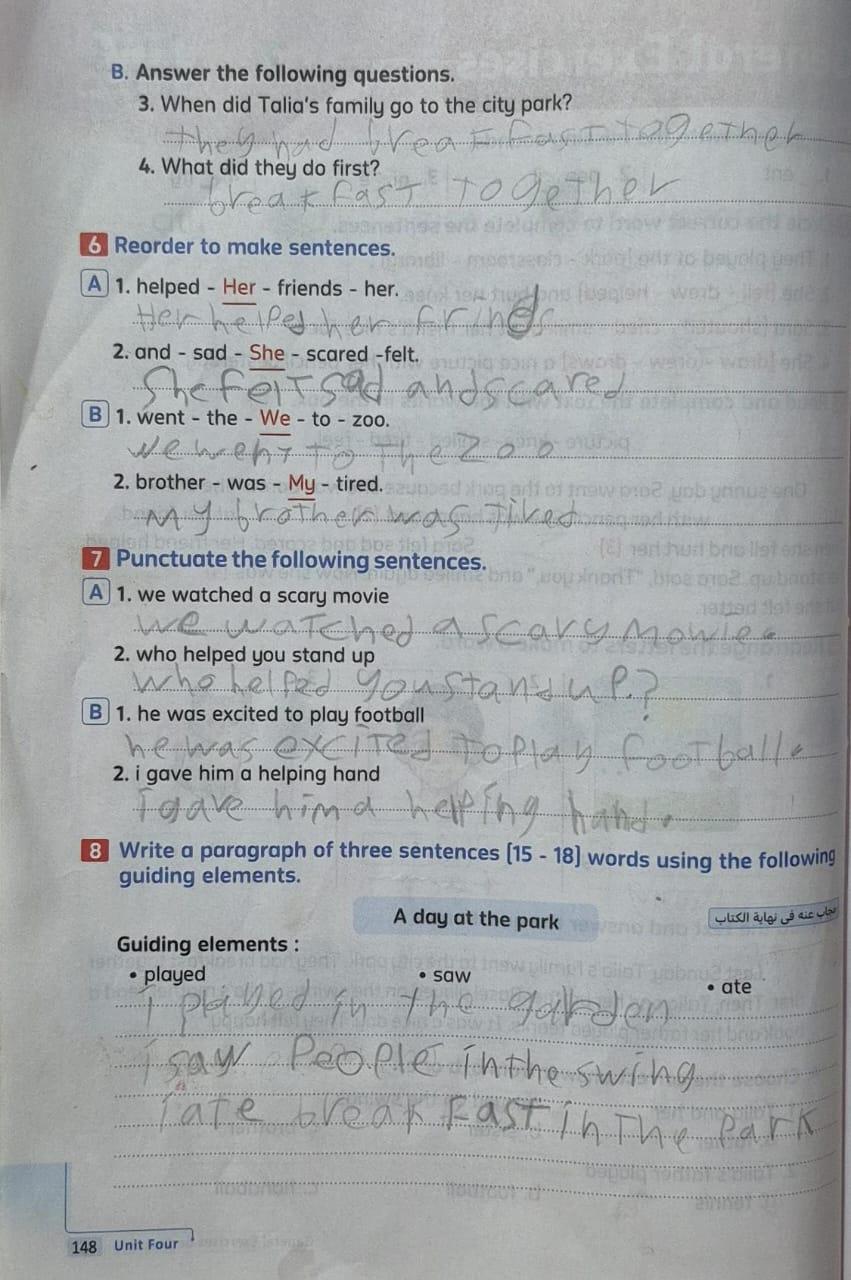 B. Answer the following questions.
3. When did Talia's family go to the city park?
they had breakfast together
4. What did they do first?
breakfast together
6 Reorder to make sentences.
A 1. helped - Her - friends - her.
Her helped her frinds
2. and - sad - She - scared -felt.
She felt sad and scared
B 1. went - the - We - to - zoo.
we went to the zoo
2. brother - was - My - tired.
My brother was tired
7 Punctuate the following sentences.
A 1. we watched a scary movie
we watched a scary movie.
2. who helped you stand up
who helped you stand up.?
B 1. he was excited to play football
he was excited to play football.
2. i gave him a helping hand
i gave him a helping hand.
8 Write a paragraph of three sentences (15 - 18) words using the following
guiding elements.
A day at the park
يجاب عنه فى نهاية الكتاب
Guiding elements :
• played • saw • ate
i played in the garden
i saw People in the swing
i ate breakfast in the Park
148 Unit Four